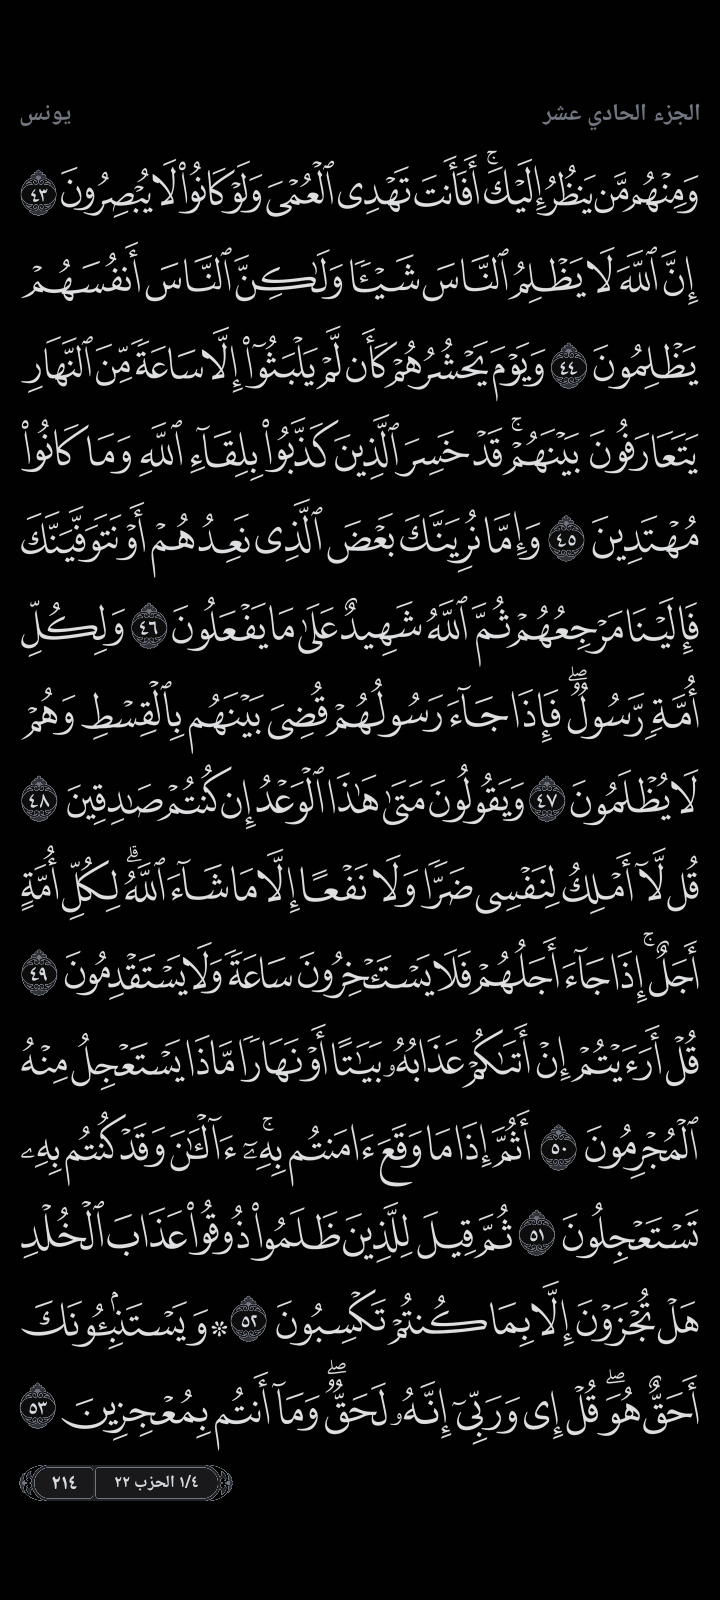 الجزء الحادي عشر
يونس
وَمِنْهُم مَّن يَنظُرُ إِلَيْكَ ۚ أَفَأَنتَ تَهْدِى ٱلْعُمْىَ وَلَوْ كَانُوا۟ لَا يُبْصِرُونَ ٤٣
إِنَّ ٱللَّهَ لَا يَظْلِمُ ٱلنَّاسَ شَيْـًٔا وَلَـٰكِنَّ ٱلنَّاسَ أَنفُسَهُمْ
يَظْلِمُونَ ٤٤ وَيَوْمَ يَحْشُرُهُمْ كَأَن لَّمْ يَلْبَثُوٓا۟ إِلَّا سَاعَةً مِّنَ ٱلنَّهَارِ
يَتَعَارَفُونَ بَيْنَهُمْ ۚ قَدْ خَسِرَ ٱلَّذِينَ كَذَّبُوا۟ بِلِقَآءِ ٱللَّهِ وَمَا كَانُوا۟
مُهْتَدِينَ ٤٥ وَإِمَّا نُرِيَنَّكَ بَعْضَ ٱلَّذِى نَعِدُهُمْ أَوْ نَتَوَفَّيَنَّكَ
فَإِلَيْنَا مَرْجِعُهُمْ ثُمَّ ٱللَّهُ شَهِيدٌ عَلَىٰ مَا يَفْعَلُونَ ٤٦ وَلِكُلِّ
أُمَّةٍ رَّسُولٌ ۖ فَإِذَا جَآءَ رَسُولُهُمْ قُضِىَ بَيْنَهُم بِٱلْقِسْطِ وَهُمْ
لَا يُظْلَمُونَ ٤٧ وَيَقُولُونَ مَتَىٰ هَـٰذَا ٱلْوَعْدُ إِن كُنتُمْ صَـٰدِقِينَ ٤٨
قُل لَّآ أَمْلِكُ لِنَفْسِى ضَرًّا وَلَا نَفْعًا إِلَّا مَا شَآءَ ٱللَّهُ ۗ لِكُلِّ أُمَّةٍ
أَجَلٌ ۚ إِذَا جَآءَ أَجَلُهُمْ فَلَا يَسْتَـْٔخِرُونَ سَاعَةً وَلَا يَسْتَقْدِمُونَ ٤٩
قُلْ أَرَءَيْتُمْ إِنْ أَتَىٰكُمْ عَذَابُهُۥ بَيَـٰتًا أَوْ نَهَارًا مَّاذَا يَسْتَعْجِلُ مِنْهُ
ٱلْمُجْرِمُونَ ٥٠ أَثُمَّ إِذَا مَا وَقَعَ ءَامَنتُم بِهِۦٓ ۚ ءَآلْـَٔـٰنَ وَقَدْ كُنتُم بِهِۦ
تَسْتَعْجِلُونَ ٥١ ثُمَّ قِيلَ لِلَّذِينَ ظَلَمُوا۟ ذُوقُوا۟ عَذَابَ ٱلْخُلْدِ
هَلْ تُجْزَوْنَ إِلَّا بِمَا كُنتُمْ تَكْسِبُونَ ٥٢ ۞ وَيَسْتَنۢبِـُٔونَكَ
أَحَقٌّ هُوَ ۖ قُلْ إِى وَرَبِّىٓ إِنَّهُۥ لَحَقٌّ ۖ وَمَآ أَنتُم بِمُعْجِزِينَ ٥٣
١/٤ الحزب ٢٢
٢١٤